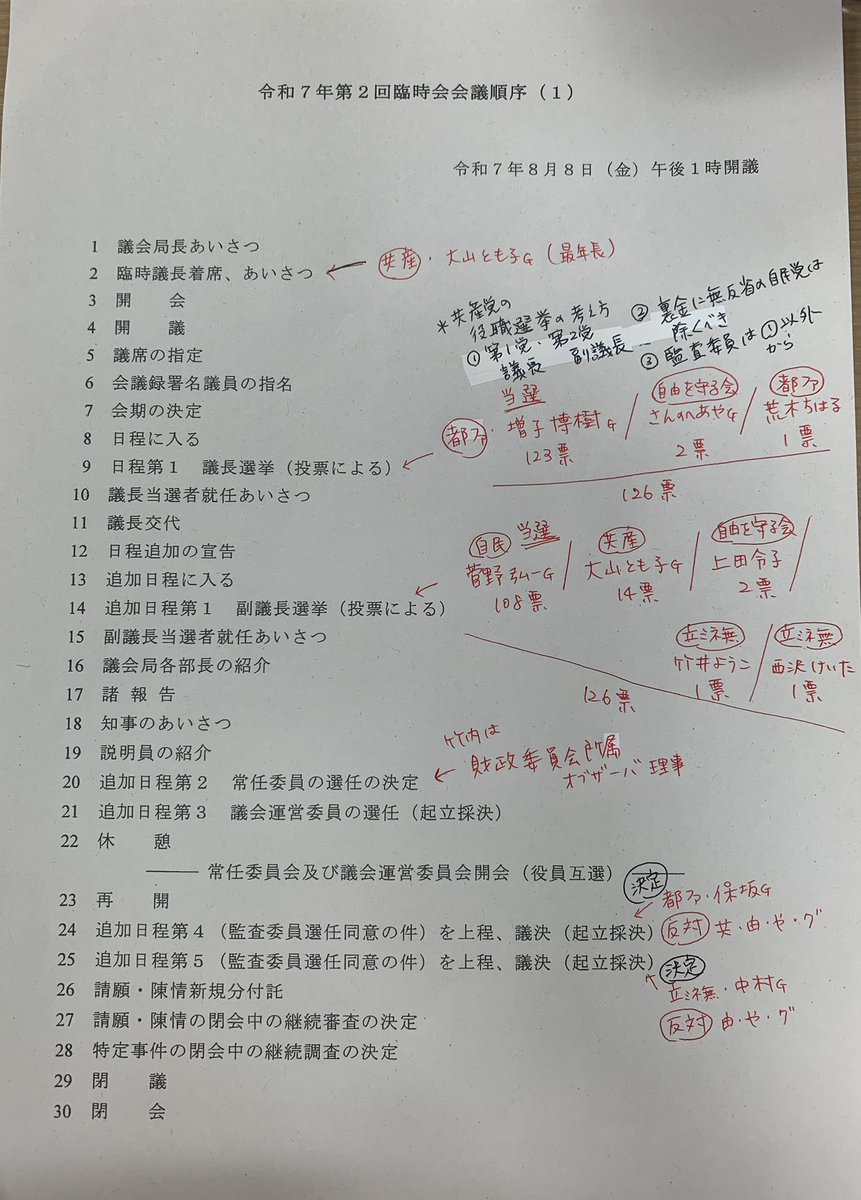 令和7年第2回臨時会会議順序（1）
令和7年8月8日（金）午後1時開議
1 議会局長あいさつ
2 臨時議長着席、あいさつ ← 共産・大山とも子G（最年長）
3 開　　会
4 開　　議
5 議席の指定
6 会議録署名議員の指名
7 会期の決定
8 日程に入る
*共産党の
役職選挙の考え方
① 第1党、第2党
議長　副議長
② 裏金に無反省の自民党は
除くべき
③ 監査委員は①以外
から
9 日程第1　議長選挙（投票による）
当選
都ファ・増子博樹G
123票
自由を守る会
さんのへあやG
2票
都ファ
荒木ちはる
1票
126票
10 議長当選者就任あいさつ
11 議長交代
12 日程追加の宣告
13 追加日程に入る
14 追加日程第1　副議長選挙（投票による）
自民 当選
菅野弘一G
108票
共産
大山とも子G
14票
自由を守る会
上田令子
2票
立ミネ無
竹井ようこ
1票
立ミネ無
西沢けいた
1票
126票
15 副議長当選者就任あいさつ
16 議会局各部長の紹介
17 諸 報 告
18 知事のあいさつ
19 説明員の紹介
20 追加日程第2　常任委員の選任の決定
竹内は
← 財政委員会所属
オブザーバ理事
21 追加日程第3　議会運営委員の選任（起立採決）
22 休　　憩
―― 常任委員会及び議会運営委員会開会（役員互選）――
23 再　　開
24 追加日程第4（監査委員選任同意の件）を上程、議決（起立採決）
決定
都ファ・保坂G
反対 共・由・や・グ
25 追加日程第5（監査委員選任同意の件）を上程、議決（起立採決）
決定
立ミネ無・中村G
反対 由・や・グ
26 請願・陳情新規分付託
27 請願・陳情の閉会中の継続審査の決定
28 特定事件の閉会中の継続調査の決定
29 閉　　議
30 閉　　会